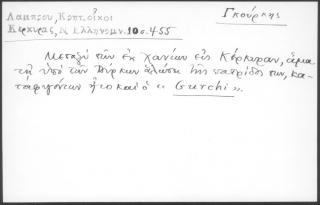 Λαμπρου, Κρητ. οἶκοι
Κερκυρας, Ν. Ελληνομν. 10 σ. 455
Γκούρκης
Μεταξύ τῶν ἐκ Χανίων εἰς Κέρκυραν, ἅμα
τῇ ὑπό τῶν Τούρκων ἁλώσει τῆς πατρίδος των, κα-
ταφυγόντων ἦτο καί ὁ « Gurchi ».